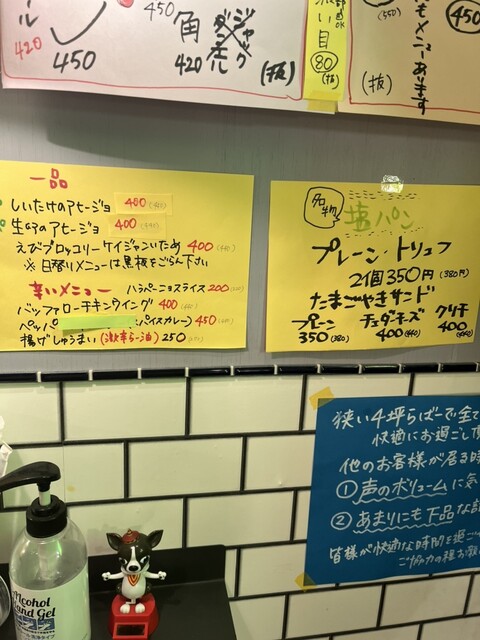 450
角
420
ジャック
(抜)
450
420
濃い目
80
(抜)
(550)
(抜)
もメニューあります
450
一品
しいたけのアヒージョ 400 (440)
生ハムのアヒージョ 400 (440)
えびブロッコリーケイジャンいため 400 (440)
※日替りメニューは黒板をごらん下さい
辛いメニュー ハラペーニョスライス 200
バッファローチキンウイング 400 (440)
ペッパ スパイスカレー) 450
揚げしゅうまい (激辛ラー油) 250
名物
塩パン
プレーン・トリュフ
2個350円 (380円)
たまごやきサンド
プレーン チェダチーズ クリチ
350 (380) 400 (440) 400 (440)
狭い4坪らばーで全て
快適にお過ごし頂
他のお客様が居る時
①声のボリュームに気
②あまりにも下品な話
皆様が快適な時間を過ご
ご協力の程お願
Alcohol
Hand Gel